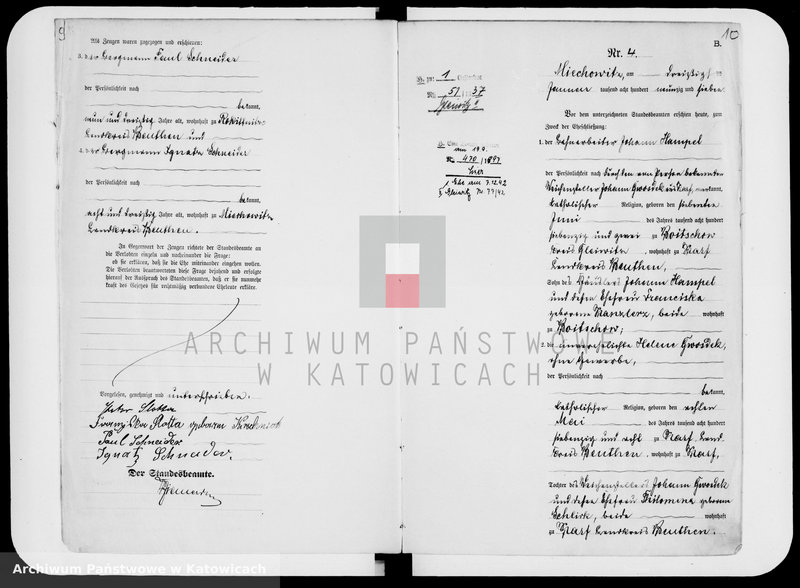 9
Als Zeugen waren zugezogen und erschienen:
3. der Bergmann Paul Schneider
der Persönlichkeit nach
bekannt,
neun und dreißig Jahre alt, wohnhaft zu Rokittnitz
Landkreis Beuthen und
4. der Bergmann Ignatz Schneider
der Persönlichkeit nach
bekannt,
acht und dreißig Jahre alt, wohnhaft zu Miechowitz
Landkreis Beuthen.
In Gegenwart der Zeugen richtete der Standesbeamte an
die Verlobten einzeln und nacheinander die Frage:
ob sie erklären, daß sie die Ehe miteinander eingehen wollen.
Die Verlobten beantworteten diese Frage bejahend und erfolgte
hierauf der Ausspruch des Standesbeamten, daß er sie nunmehr
kraft des Gesetzes für rechtmäßig verbundene Eheleute erkläre.
Vorgelesen, genehmigt und unterschrieben.
Peter Slotta
Franziska Rotta geborene
Paul Schneider
Ignatz Schneider.
Der Standesbeamte.
10
B.
Nr. 4.
Miechowitz, am dreißig
Januar tausend acht hundert neunzig und sieben
Vor dem unterzeichneten Standesbeamten erschienen heute, zum
Zweck der Eheschließung:
1. der Bahnarbeiter Johann Hampel
der Persönlichkeit nach durch den von Person bekannten
Weichensteller Johann Gwosdek bekannt,
katholischer Religion, geboren den siebenten
Juni des Jahres tausend acht hundert
siebenzig und zwei zu Boitschow
Kreis Gleiwitz, wohnhaft zu Karf
Landkreis Beuthen,
Sohn des Häuslers Johann Hampel
und dessen Ehefrau Franciska
geborene Kanzlerz, beide wohnhaft
zu Boitschow;
2. die unverehelichte Helene Gwosdek,
ohne Gewerbe,
der Persönlichkeit nach
bekannt,
katholischer Religion, geboren den achten
Mai des Jahres tausend acht hundert
siebenzig und acht zu Karf, Land-
kreis Beuthen, wohnhaft zu Karf,
Tochter des Weichenstellers Johann Gwosdek
und dessen Ehefrau Filomena geborene
beide wohnhaft
zu Karf Landkreis Beuthen.
1
51 37
Gleiwitz
470/1897
ARCHIWUM PAŃSTWOWE
W KATOWICACH
Archiwum Państwowe w Katowicach